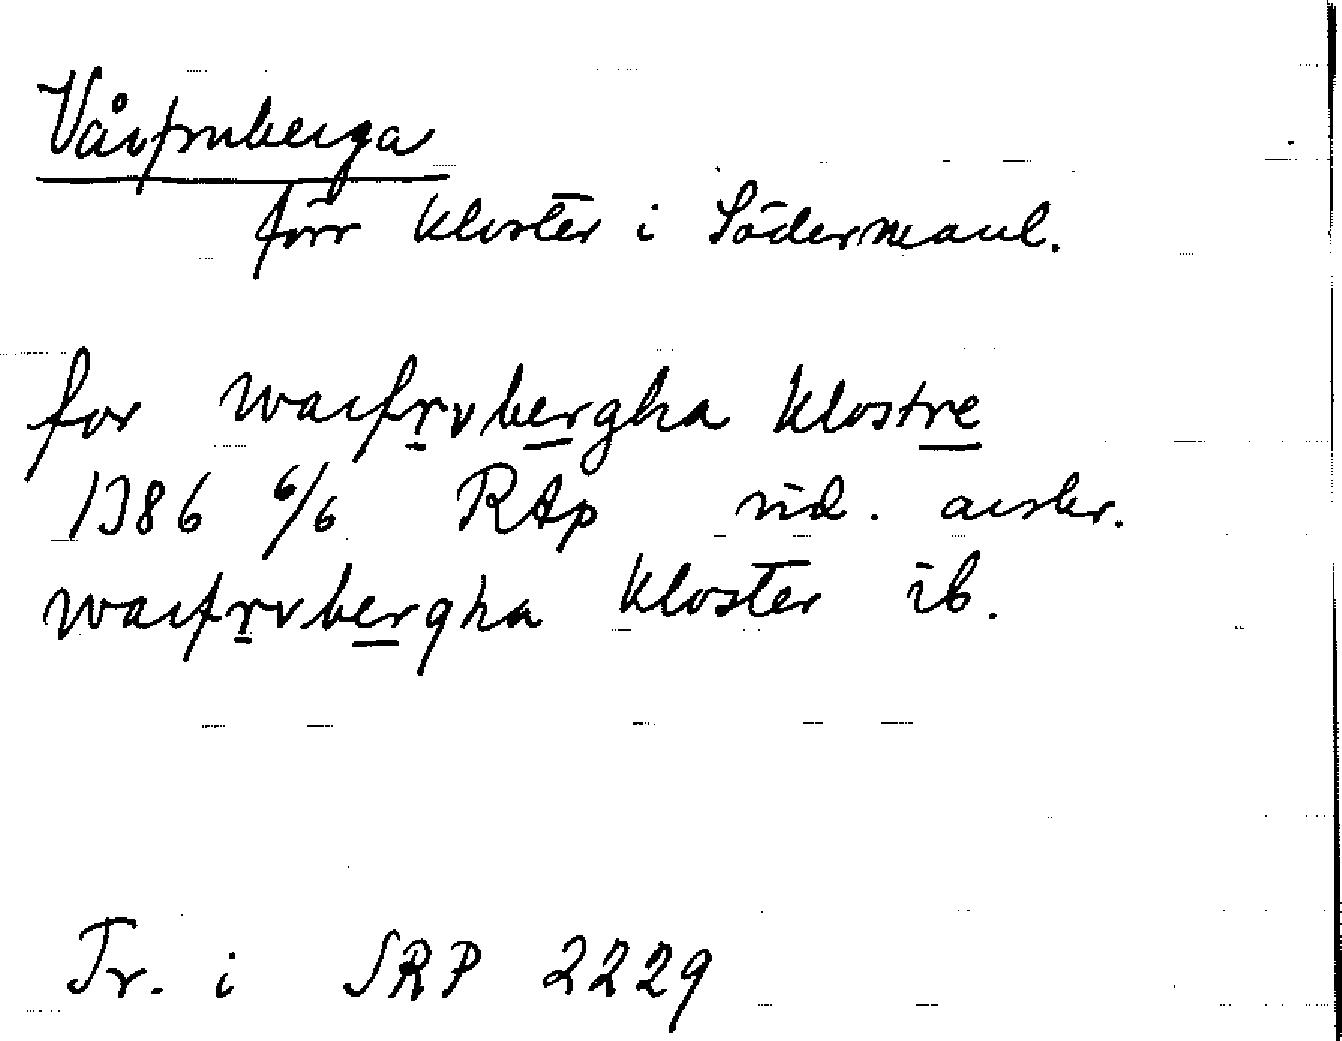 Vårfruberga
förr kloster i Södermanl.
for warfrvbergha klostre
1386 6/6 RAp sid. avskr.
warfrvbergha kloster ib.
Tr. i SRP 2229